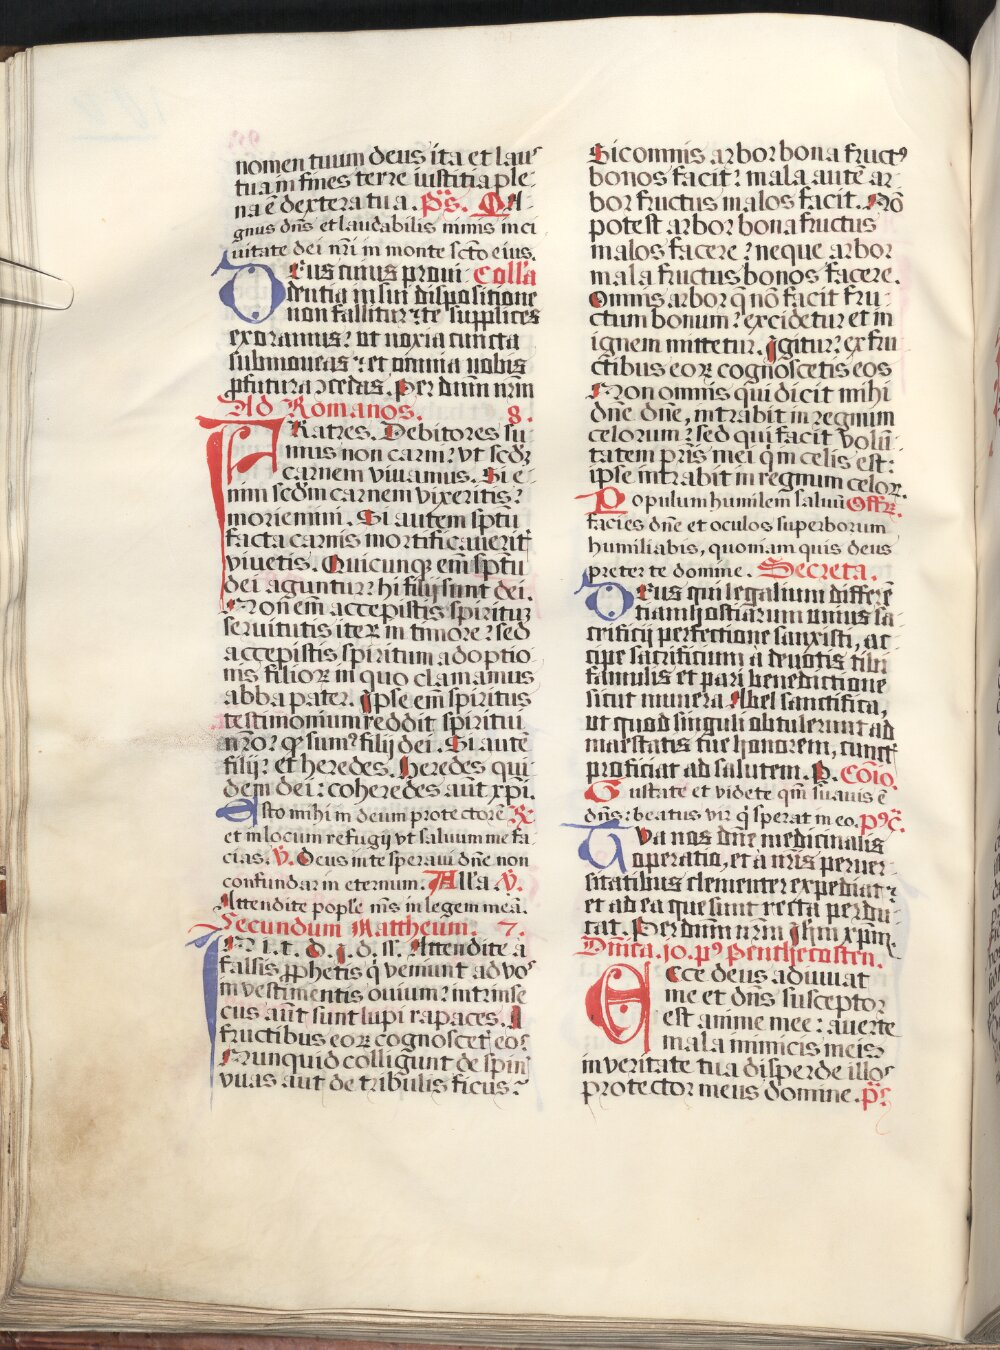 nomen tuum deus ita et laus
tua in fines terre iusticia ple-
na ē dextera tua. p̄s. Ma-
gnus dn̄s et laudabilis nimis in ci
uitate dei nr̄i in monte sc̄to eius.
Deus cuius proui- Coll'a
dentia in sui dispositione
non fallitur: te supplices
exoramus: ut noxia cuncta
submoueas: et omnia nobis
ꝓfutura ↄcedas. Per dnm̄ nrm̄
Ad Romanos. 8.
FRatres. Debitores su
mus non carni: vt scdꝫ
carnem viuamus. Si e-
nim scdm̄ carnem vixeritis:
moriemini. Si autem sp̄tu
facta carnis mortificaueritˢ
viuetis. Quicunqꝫ em̄ sp̄tu
dei aguntur: hi filij sunt dei.
Non em̄ accepistis spirituꝫ
seruitutis iteꝝ in timore: sed
accepistis spiritum adoptio
nis filioꝝ in quo clamamus
abba pater. Ipse em̄ spiritus
testimonium reddit spiritui
nr̄o: ꝙ sumꝰ filij dei. Si autē
filij: et heredes. heredes qui-
dem dei: coheredes aūt xp̄i.
Esto mihi in deum protectorē R̄
et in locum refugij vt saluum me fa
cias. V̄. Deus in te speraui dn̄e non
confundar in eternum. Alla V̄.
Attendite popl'e ms̄ in legem meā.
Secundum Mattheum. 7.
IN i. t. d. i. d. s. Attendite a
falsis ꝓphetis q̄ veniunt ad vos
in vestimentis ouium: intrinse
cus aūt sunt lupi rapaces. A
fructibus eoꝝ cognoscetˢ eos
Nunquid colligunt de spinˢ
vuas aut de tribulis ficus:
Sic omnis arbor bona fructꝰ
bonos facit: mala autē ar-
bor fructus malos facit. Nō
potest arbor bona fructus
malos facere: neque arbor
mala fructus bonos facere.
Omnis arbor q̄ nō facit fru-
ctum bonum: excidetur et in
ignem mittetur. Igitur: ex fru
ctibus eoꝝ cognoscetis eos
Non omnis qui dicit mihi
dn̄e dn̄e, intrabit in regnum
celorum: sed qui facit volū-
tatem pr̄is mei q̄ in celis est:
ipse intrabit in regnum celoꝝ.
Populum humilem saluū Offꝝ.
facies dn̄e et oculos superborum
humiliabis, quoniam quis deus
preter te domine. Secreta.
Deus qui legalium differē
tiam hostiarum unius sa-
crificij perfectione sanxisti, ac
cipe sacrificium à deuotis tibi
famulis et pari benedictione
sicut munera Abel sanctifica,
ut quod singuli obtulerunt ad
maiestatis tue honorem, cunctˢ
proficiat ad salutem. P. Cōio.
Gustate et videte qm̄ suauis ē
dn̄s: beatus vir q̄ sperat in eo. pꝰc̄.
Tua nos dn̄e medicinalis
operatio, et à nr̄is peruer-
sitatibus clementer expediat:
et ad ea que sunt recta perdu-
cat. Per dnm̄ nrm̄ Ihm̄ xpm̄.
Dn̄ica. 10. pꝰ Penthecosten.
Ecce deus adiuuat
me et dn̄s susceptor
est anime mee: auerte
mala inimicis meis
in veritate tua disperde illos
protector meus domine. p̄s